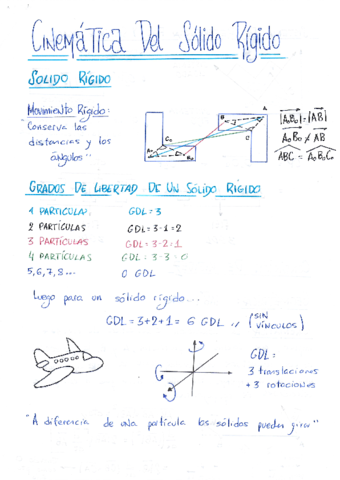 Cinemática Del Sólido Rígido
SOLIDO RÍGIDO
Movimiento Rígido:
"Conserva las
distancias y los
ángulos"
A
B
C
A₀
B₀
C₀
|A₀B₀|=|AB|
A₀B₀ ≠ AB
ABC = A₀B₀C₀
GRADOS DE LIBERTAD DE UN SÓLIDO RÍGIDO
1 PARTÍCULA: GDL = 3
2 PARTÍCULAS GDL = 3-1 = 2
3 PARTÍCULAS GDL = 3-2 = 1
4 PARTÍCULAS GDL = 3-3 = 0
5,6,7,8... 0 GDL
Luego para un sólido rígido...
GDL = 3+2+1 = 6 GDL // (SIN VÍNCULOS)
GDL =
3 translaciones
+ 3 rotaciones
"A diferencia de una partícula los sólidos pueden girar"